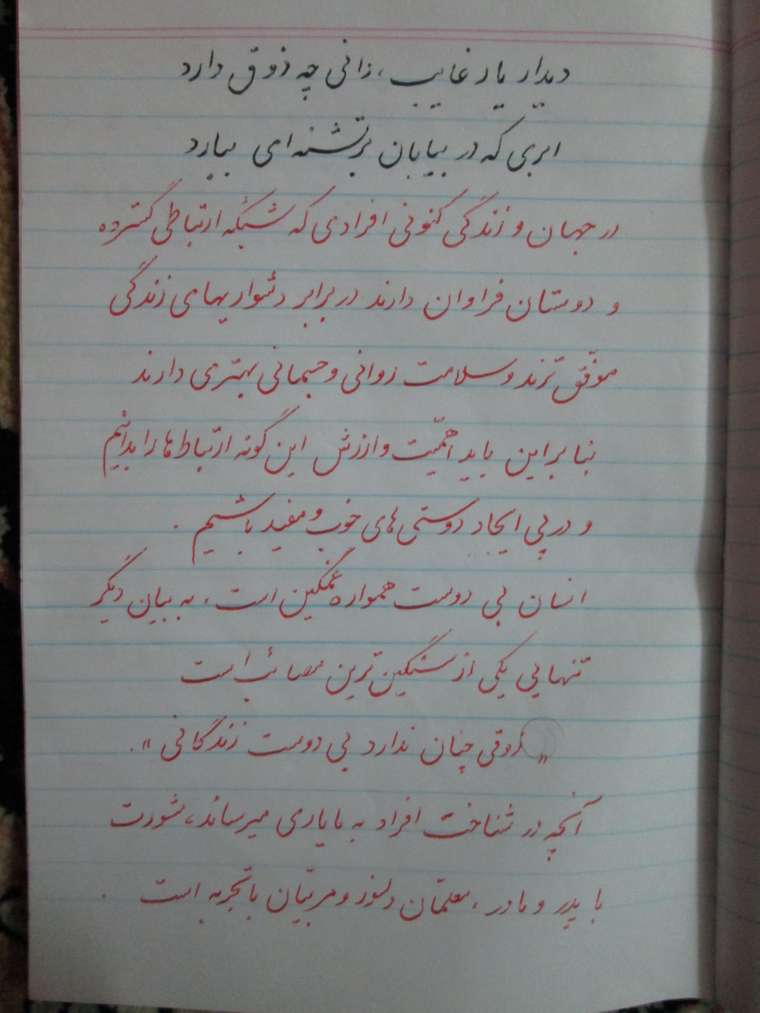 دیدار یار غایب، دانی چه ذوق دارد
ابری که در بیابان بر تشنه‌ای ببارد
در جهان و زندگی کنونی افرادی که شبکه ارتباطی گسترده
و دوستان فراوان دارند در برابر دشواریهای زندگی
موفّق ترند و سلامت روانی و جسمانی بهتری دارند
بنابراین باید اهمّیت و ارزش این گونه ارتباط‌ها را بدانیم
و در پی ایجاد دوستی‌های خوب و مفید باشیم .
انسان بی دوست همواره غمگین است، به بیان دیگر
تنهایی یکی از سنگین ترین مصائب است
« ذوقی چنان ندارد بی دوست زندگانی ».
آنچه در شناخت افراد به ما یاری میرساند، مشورت
با پدر و مادر، معلّمان دلسوز و مربّیان با تجربه است .